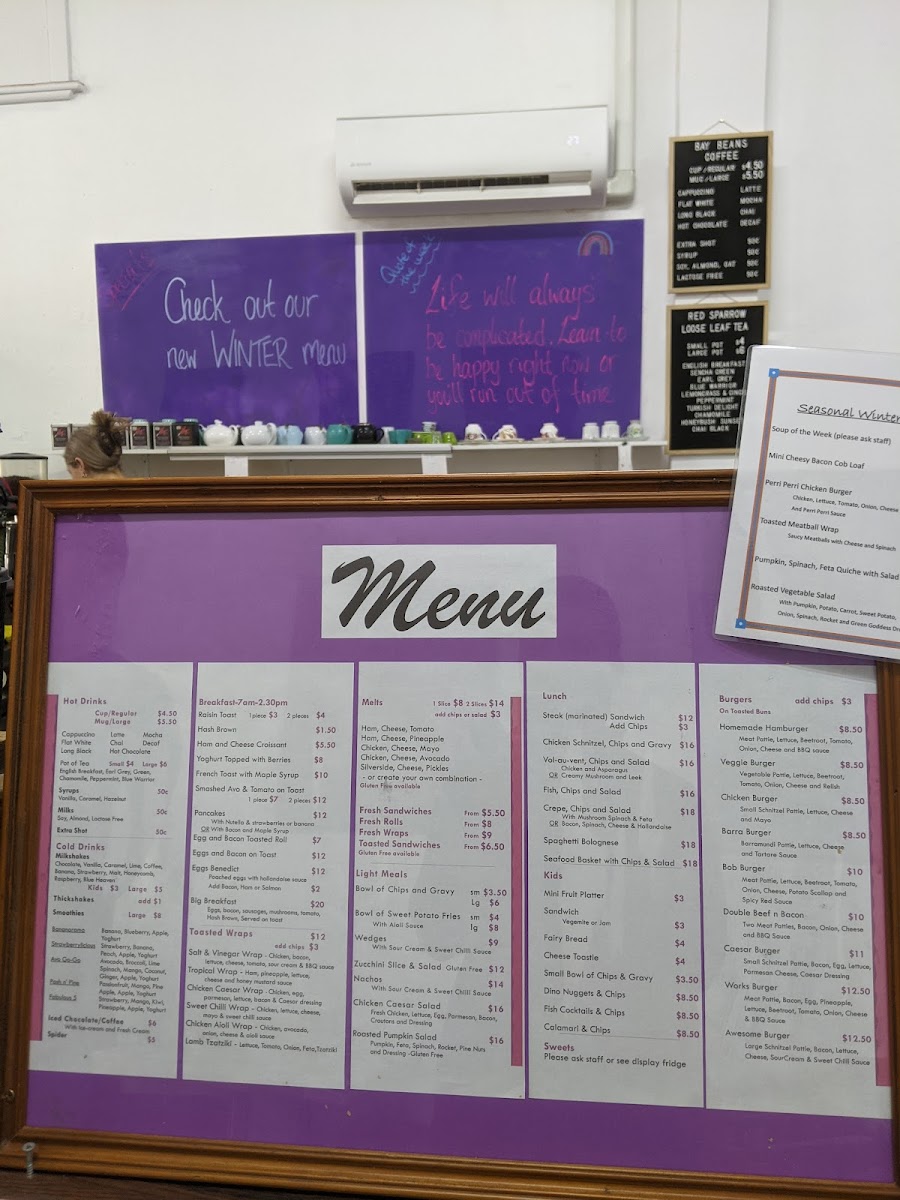 Check out our
new WINTER menu
Quote of
the week
Life will always
be complicated. Learn to
be happy right now or
you'll run out of time
BAY BEANS
COFFEE
CUP/REGULAR $4.50
MUG/LARGE $5.50
CAPPUCCINO LATTE
FLAT WHITE MOCHA
LONG BLACK CHAI
HOT CHOCOLATE DECAF
EXTRA SHOT 50¢
SYRUP 50¢
SOY, ALMOND, OAT 50¢
LACTOSE FREE 50¢
RED SPARROW
LOOSE LEAF TEA
SMALL POT $4
LARGE POT $6
ENGLISH BREAKFAST
SENCHA GREEN
EARL GREY
BLUE WARRIOR
LEMONGRASS &
PEPPERMINT
TURKISH DELIGHT
CHAMOMILE
HONEYBUSH
CHAI BLACK
Seasonal Winter
Soup of the Week (please ask staff)
Mini Cheesy Bacon Cob Loaf
Perri Perri Chicken Burger
Chicken, Lettuce, Tomato, Onion, Cheese
And Perri Perri Sauce
Toasted Meatball Wrap
Saucy Meatballs with Cheese and Spinach
Pumpkin, Spinach, Feta Quiche with Salad
Roasted Vegetable Salad
With Pumpkin, Potato, Carrot, Sweet Potato,
Onion, Spinach, Rocket and Green Goddess
Menu
Hot Drinks
Cup/Regular $4.50
Mug/Large $5.50
Cappuccino Latte Mocha
Flat White Chai Decaf
Long Black Hot Chocolate
Pot of Tea Small $4 Large $6
English Breakfast, Earl Grey, Green,
Chamomile, Peppermint, Blue Warrior
Syrups 50c
Vanilla, Caramel, Hazelnut
Milks 50c
Soy, Almond, Lactose Free
Extra Shot 50c
Cold Drinks
Milkshakes
Chocolate, Vanilla, Caramel, Lime, Coffee,
Banana, Strawberry, Malt, Honeycomb,
Raspberry, Blue Heaven
Kids $3 Large $5
Thickshakes add $1
Smoothies Large $8
Bananarama Banana, Blueberry, Apple,
Yoghurt
Strawberrylicious Strawberry, Banana,
Peach, Apple, Yoghurt
Avo Go-Go Avocado, Broccoli, Lime
Spinach, Mango, Coconut,
Ginger, Apple, Yoghurt
Pash n' Pine Passionfruit, Mango, Pine
Apple, Apple, Yoghurt
Fabulous 5 Strawberry, Mango, Kiwi,
Pineapple, Apple, Yoghurt
Iced Chocolate/Coffee $6
With Ice-cream and Fresh Cream
Spider $5
Breakfast-7am-2.30pm
Raisin Toast 1 piece $3 2 pieces $4
Hash Brown $1.50
Ham and Cheese Croissant $5.50
Yoghurt Topped with Berries $8
French Toast with Maple Syrup $10
Smashed Avo & Tomato on Toast
1 piece $7 2 pieces $12
Pancakes $12
With Nutella & strawberries or banana
OR With Bacon and Maple Syrup
Egg and Bacon Toasted Roll $7
Eggs and Bacon on Toast $12
Eggs Benedict $12
Poached eggs with hollandaise sauce
Add Bacon, Ham or Salmon $2
Big Breakfast $20
Eggs, bacon, sausages, mushrooms, tomato,
Hash Brown, Served on toast
Toasted Wraps $12
add chips $3
Salt & Vinegar Wrap - Chicken, bacon,
lettuce, cheese, tomato, sour cream & BBQ sauce
Tropical Wrap - Ham, pineapple, lettuce,
cheese and honey mustard sauce
Chicken Caesar Wrap - Chicken, egg,
parmesan, lettuce, bacon & Caesar dressing
Sweet Chilli Wrap - Chicken, lettuce, cheese,
mayo & sweet chilli sauce
Chicken Aioli Wrap - Chicken, avocado,
onion, cheese & aioli sauce
Lamb Tzatziki - Lettuce, Tomato, Onion, Feta, Tzatziki
Melts 1 Slice $8 2 Slices $14
add chips or salad $3
Ham, Cheese, Tomato
Ham, Cheese, Pineapple
Chicken, Cheese, Mayo
Chicken, Cheese, Avocado
Silverside, Cheese, Pickles
- or create your own combination -
Gluten Free available
Fresh Sandwiches From $5.50
Fresh Rolls From $8
Fresh Wraps From $9
Toasted Sandwiches From $6.50
Gluten Free available
Light Meals
Bowl of Chips and Gravy sm $3.50
Lg $6
Bowl of Sweet Potato Fries sm $4
With Aioli Sauce lg $8
Wedges $9
With Sour Cream & Sweet Chilli Sauce
Zucchini Slice & Salad Gluten Free $12
Nachos $14
With Sour Cream & Sweet Chilli Sauce
Chicken Caesar Salad $16
Fresh Chicken, Lettuce, Egg, Parmesan, Bacon,
Croutons and Dressing
Roasted Pumpkin Salad $16
Pumpkin, Feta, Spinach, Rocket, Pine Nuts
and Dressing -Gluten Free
Lunch
Steak (marinated) Sandwich $12
Add Chips $3
Chicken Schnitzel, Chips and Gravy $16
Val-au-vent, Chips and Salad $16
Chicken and Asparagus
OR Creamy Mushroom and Leek
Fish, Chips and Salad $16
Crepe, Chips and Salad $18
With Mushroom Spinach & Feta
OR Bacon, Spinach, Cheese & Hollandaise
Spaghetti Bolognese $18
Seafood Basket with Chips & Salad $18
Kids
Mini Fruit Platter $3
Sandwich
Vegemite or Jam $3
Fairy Bread $4
Cheese Toastie $4
Small Bowl of Chips & Gravy $3.50
Dino Nuggets & Chips $8.50
Fish Cocktails & Chips $8.50
Calamari & Chips $8.50
Sweets
Please ask staff or see display fridge
Burgers add chips $3
On Toasted Buns
Homemade Hamburger $8.50
Meat Pattie, Lettuce, Beetroot, Tomato,
Onion, Cheese and BBQ sauce
Veggie Burger $8.50
Vegetable Pattie, Lettuce, Beetroot,
Tomato, Onion, Cheese and Relish
Chicken Burger $8.50
Small Schnitzel Pattie, Lettuce, Cheese
and Mayo
Barra Burger $8.50
Barramundi Pattie, Lettuce, Cheese
and Tartare Sauce
Bob Burger $10
Meat Pattie, Lettuce, Beetroot, Tomato,
Onion, Cheese, Potato Scallop and
Spicy Red Sauce
Double Beef n Bacon $10
Two Meat Patties, Bacon, Onion, Cheese
and BBQ Sauce
Caesar Burger $11
Small Schnitzel Pattie, Bacon, Egg, Lettuce,
Parmesan Cheese, Caesar Dressing
Works Burger $12.50
Meat Pattie, Bacon, Egg, Pineapple,
Lettuce, Beetroot, Tomato, Onion, Cheese
& BBQ Sauce
Awesome Burger $12.50
Large Schnitzel Pattie, Bacon, Lettuce,
Cheese, SourCream & Sweet Chilli Sauce